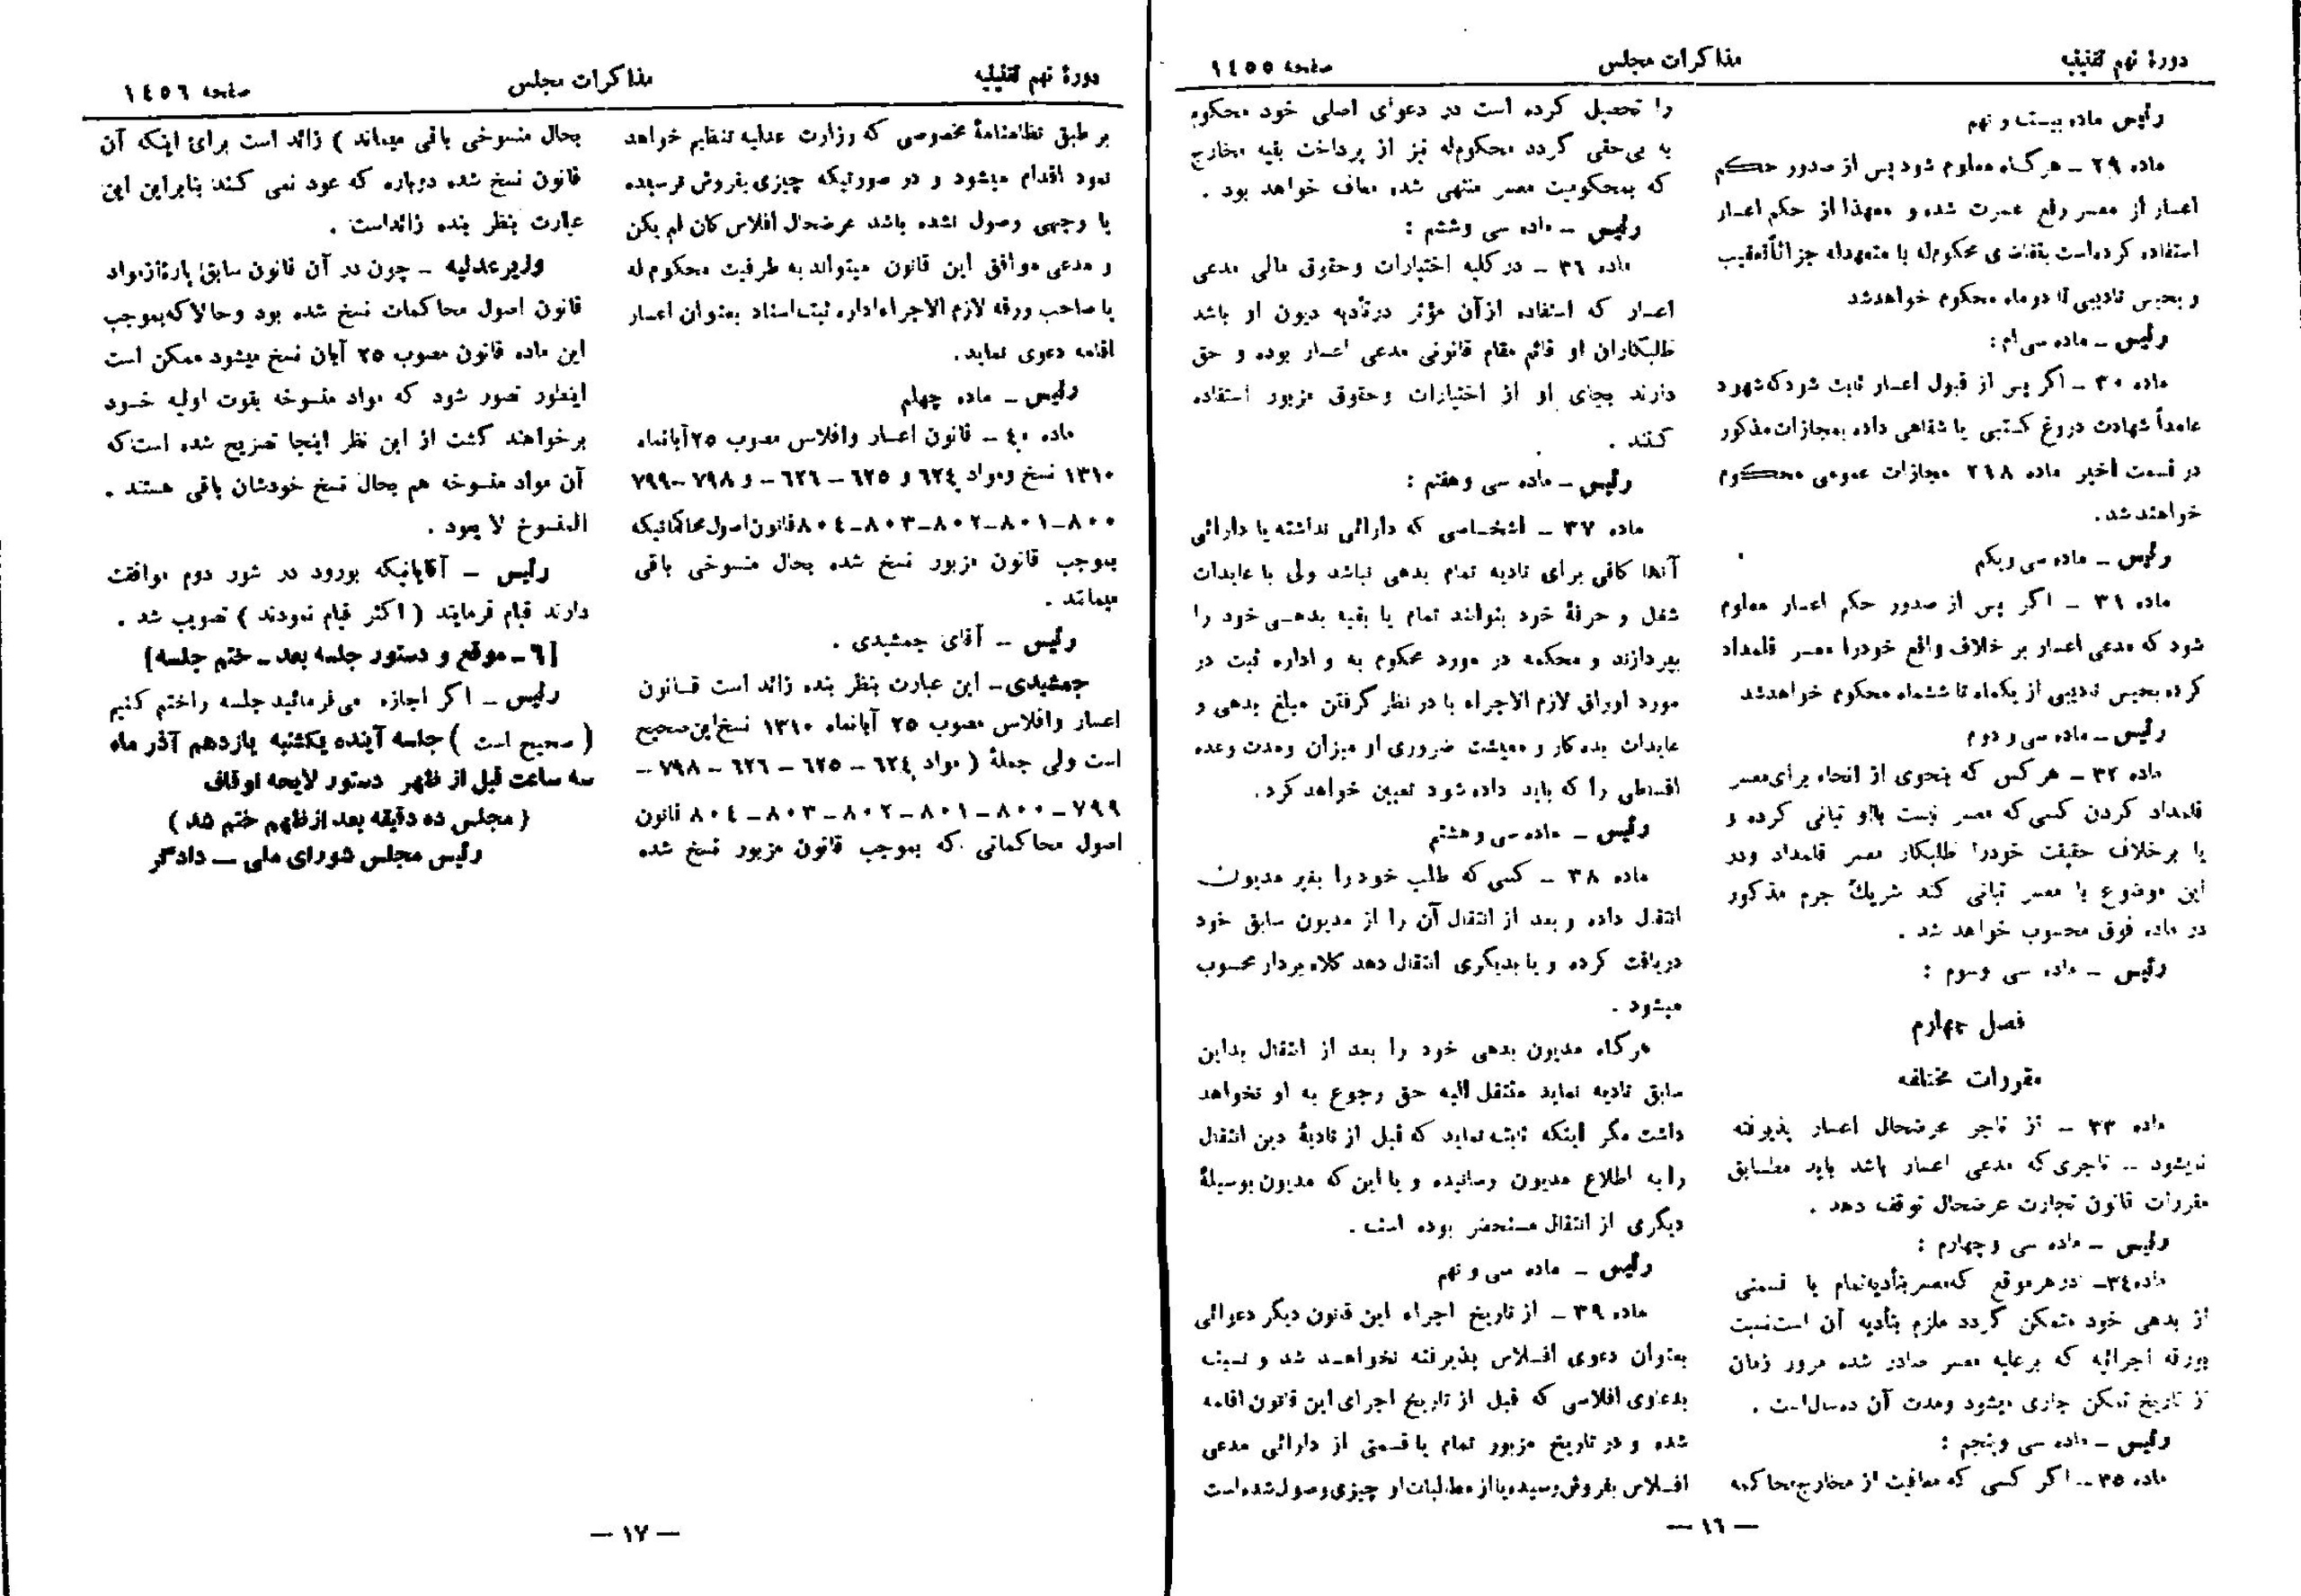 دورهٔ نهم تقنینیه
مذاکرات مجلس
صفحه ۱٤٥٥
رئیس ماده بیست و نهم
ماده ۲۹ ـ هرگاه معلوم شود پس از صدور حکم
اعسار از معسر رفع عسرت شده و معهذا از حکم اعسار
استفاده کرده‌است بتقاضای محکوم‌له یا متعهدله جزائاً تعقیب
و بحبس تادیبی تا دو ماه محکوم خواهدشد
رئیس ـ ماده سی‌ام:
ماده ۳۰ ـ اگر پس از قبول اعسار ثابت شود که شهود
عامداً شهادت دروغ کتبی یا شفاهی داده بمجازات مذکور
در قسمت اخیر ماده ۲۱۸ مجازات عمومی محکوم
خواهند شد.
رئیس ـ ماده سی و یکم
ماده ۳۱ ـ اگر پس از صدور حکم اعسار معلوم
شود که مدعی اعسار بر خلاف واقع خود را معسر قلمداد
کرده بحبس تادیبی از یکماه تا ششماه محکوم خواهدشد
رئیس ـ ماده سی و دوم
ماده ۳۲ ـ هر کس که بنحوی از انحاء برای معسر
قلمداد کردن کسی که معسر نیست با او تبانی کرده و
یا برخلاف حقیقت خود را طلبکار معسر قلمداد و در
این موضوع با معسر تبانی کند شریک جرم مذکور
در ماده فوق محسوب خواهد شد .
رئیس ـ ماده سی وسوم :
فصل چهارم
مقررات مختلفه
ماده ۳۳ ـ از تاجر عرضحال اعسار پذیرفته
نمیشود ـ تاجری که مدعی اعسار باشد باید مطابق
مقررات قانون تجارت عرضحال توقف دهد .
رئیس ـ ماده سی و چهارم :
ماده ۳٤ـ در هر موقع که معسر بتأدیه تمام یا قسمتی
از بدهی خود متمکن گردد ملزم بتأدیه آن است نسبت
بورقه اجرائیه که بر علیه معسر صادر شده مرور زمان
از تاریخ تمکن جاری میشود و مدت آن ده سال است .
رئیس ـ ماده سی وپنجم :
ماده ۳٥ ـ اگر کسی که معافیت از مخارج محاکمه
را تحصیل کرده است در دعوای اصلی خود محکوم
به بی‌حقی گردد محکوم‌له نیز از پرداخت بقیه مخارج
که بمحکومیت معسر منتهی شده معاف خواهد بود .
رئیس ـ ماده سی وششم :
ماده ۳٦ ـ در کلیه اختیارات وحقوق مالی مدعی
اعسار که استفاده از آن مؤثر در تأدیه دیون او باشد
طلبکاران او قائم مقام قانونی مدعی اعسار بوده و حق
دارند بجای او از اختیارات وحقوق مزبور استفاده
کنند .
رئیس ـ ماده سی و هفتم :
ماده ۳۷ ـ اشخاصی که دارائی نداشته یا دارائی
آنها کافی برای تادیه تمام بدهی نباشد ولی با عایدات
شغل و حرفهٔ خود بتوانند تمام یا بقیه بدهی خود را
بپردازند و محکمه در مورد محکوم به و اداره ثبت در
مورد اوراق لازم الاجراء با در نظر گرفتن مبلغ بدهی و
عایدات بده‌کار و معیشت ضروری او میزان ومدت وعده
اقساطی را که باید داده شود تعیین خواهد کرد.
رئیس ـ ماده سی و هشتم
ماده ۳۸ ـ کسی که طلب خود را بغیر مدیون
انتقال داده و بعد از انتقال آن را از مدیون سابق خود
دریافت کرده و یا بدیگری انتقال دهد کلاه بردار محسوب
میشود .
هرگاه مدیون بدهی خود را بعد از انتقال بداین
سابق تادیه نماید منتقل الیه حق رجوع به او نخواهد
داشت مگر اینکه ثابت نماید که قبل از تادیهٔ دین انتقال
را به اطلاع مدیون رسانیده و یا این که مدیون بوسیلهٔ
دیگری از انتقال مستحضر بوده است .
رئیس ـ ماده سی و نهم
ماده ۳۹ ـ از تاریخ اجراء این قانون دیگر دعوائی
بعنوان دعوی افلاس پذیرفته نخواهد شد و نسبت
بدعاوی افلاسی که قبل از تاریخ اجرای این قانون اقامه
شده و در تاریخ مزبور تمام یا قسمتی از دارائی مدعی
افلاس بفروش رسیده یا از مطالبات او چیزی وصول شده است
— ۱٦ —
دورهٔ نهم تقنینیه
مذاکرات مجلس
صفحه ۱٤٥٦
بر طبق نظامنامهٔ مخصوصی که وزارت عدلیه تنظیم خواهد
نمود اقدام میشود و در صورتیکه چیزی بفروش نرسیده
یا وجهی وصول نشده باشد عرضحال افلاس کان لم یکن
و مدعی موافق این قانون میتواند به طرفیت محکوم له
یا صاحب ورقه لازم الاجراء اداره ثبت اسناد بعنوان اعسار
اقامه دعوی نماید.
رئیس ـ ماده چهلم
ماده ٤۰ ـ قانون اعسار وافلاس مصوب ۲٥ آبانماه
۱۳۱۰ نسخ ومواد ٦۲٤ و ٦۲٥ ـ ٦۲٦ ـ و ۷۹۸ ـ ۷۹۹
۸۰۰ـ۸۰۱ـ۸۰۲ـ۸۰۳ـ۸۰٤ قانون اصول محاکماتیکه
بموجب قانون مزبور نسخ شده بحال منسوخی باقی
میمانند .
رئیس ـ آقای جمشیدی .
جمشیدی ـ این عبارت بنظر بنده زائد است قانون
اعسار وافلاس مصوب ۲٥ آبانماه ۱۳۱۰ نسخ این صحیح
است ولی جملهٔ ( مواد ٦۲٤ ـ ٦۲٥ ـ ٦۲٦ ـ ۷۹۸ ـ
۷۹۹ ـ ۸۰۰ ـ ۸۰۱ ـ ۸۰۲ ـ ۸۰۳ ـ ۸۰٤ قانون
اصول محاکماتی که بموجب قانون مزبور نسخ شده
بحال منسوخی باقی میماند ) زائد است برای اینکه آن
قانون نسخ شده دوباره که عود نمی کند بنابراین این
عبارت بنظر بنده زائداست .
وزیر عدلیه ـ چون در آن قانون سابق پارهٔ از مواد
قانون اصول محاکمات نسخ شده بود وحالا که بموجب
این ماده قانون مصوب ۲٥ آبان نسخ میشود ممکن است
اینطور تصور شود که مواد منسوخه بقوت اولیه خود
برخواهند گشت از این نظر اینجا تصریح شده است که
آن مواد منسوخه هم بحال نسخ خودشان باقی هستند .
المنسوخ لا یعود .
رئیس ـ آقایانیکه بورود در شور دوم موافقت
دارند قیام فرمایند ( اکثر قیام نمودند ) تصویب شد .
[٦ ـ موقع و دستور جلسه بعد ـ ختم جلسه]
رئیس ـ اگر اجازه می‌فرمائید جلسه را ختم کنیم
( صحیح است ) جلسه آینده یکشنبه یازدهم آذر ماه
سه ساعت قبل از ظهر دستور لایحه اوقاف
( مجلس ده دقیقه بعد از ظهر ختم شد )
رئیس مجلس شورای ملی ــ دادگر
— ۱۷ —